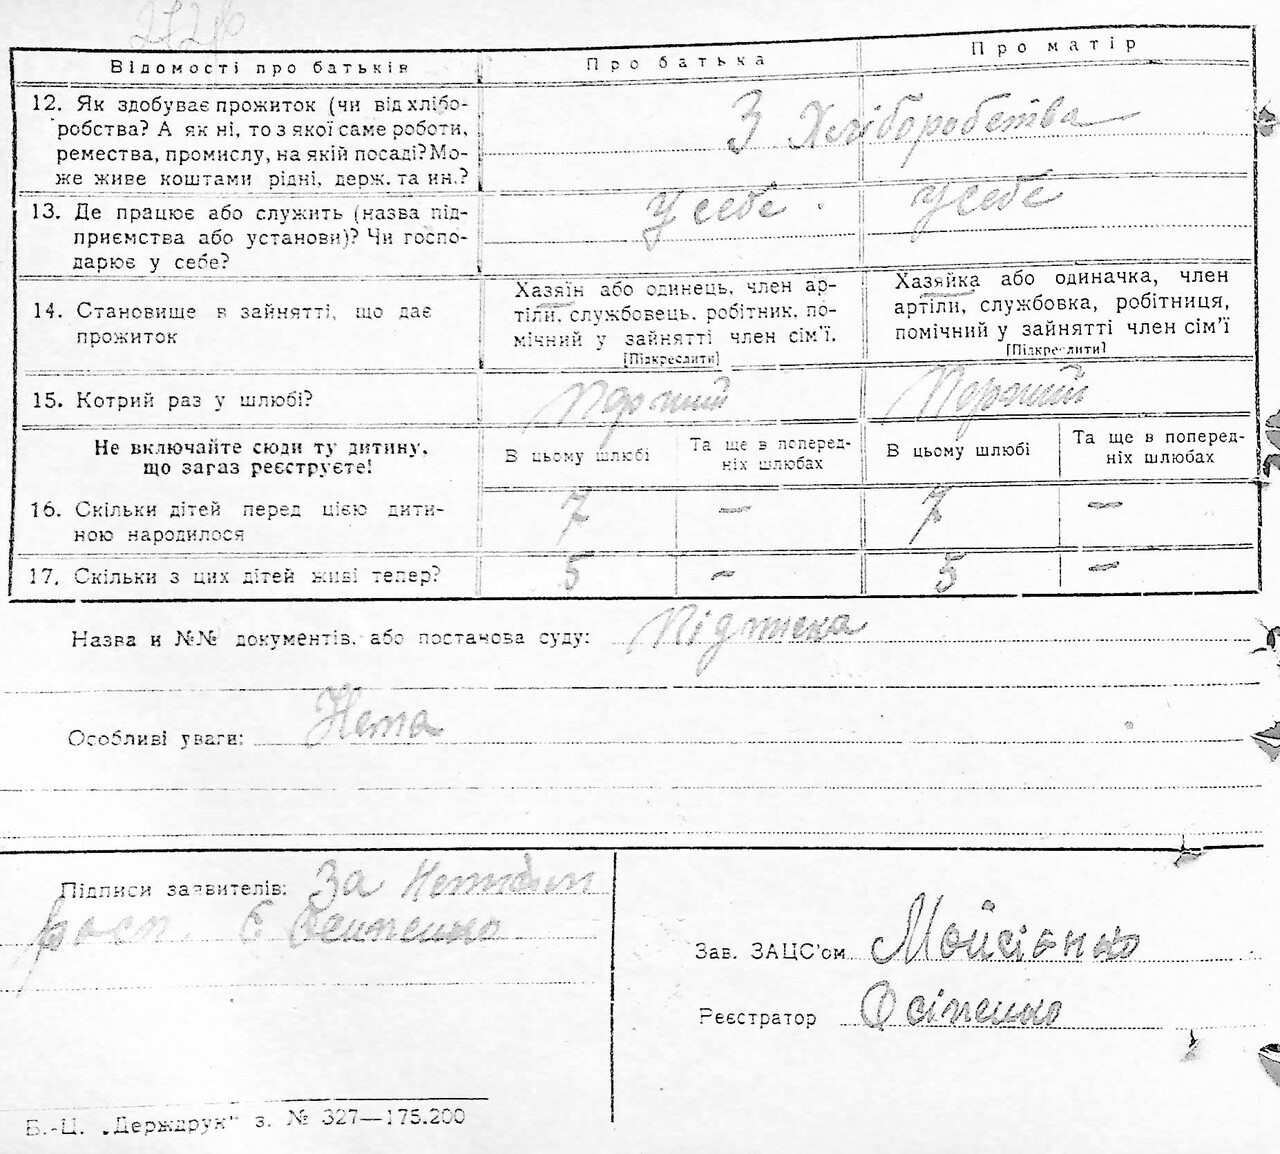 Відомості про батьків Про батька Про матір
12. Як здобуває прожиток (чи від хлібо-
робства? А як ні, то з якої саме роботи,
ремества, промислу, на якій посаді? Мо-
же живе коштами рідні, держ. та ин.?
З Хліборобства
13. Де працює або служить (назва під-
приємства або установи)? Чи госпо-
дарює у себе?
У себе У себе
14. Становише в зайнятті, що дає
прожиток
Хазяїн або одинець, член ар-
тіли, службовець, робітник, по-
мічний у зайнятті член сім'ї.
[Підкреслити]
Хазяйка або одиначка, член
артіли, службовка, робітниця,
помічний у зайнятті член сім'ї
[Підкреслити]
15. Котрий раз у шлюбі? Перший Перший
Не включайте сюди ту дитину,
що загаз реєструєте!
В цьому шлюбі
Та ще в поперед-
ніх шлюбах
В цьому шлюбі
Та ще в поперед-
ніх шлюбах
16. Скільки дітей перед цією дити-
ною народилося
7 — 7 —
17. Скільки з цих дітей живі тепер? 5 — 5 —
Назва и №№ документів, або постанова суду: Підписка
Особливі уваги: Нема
Підписи заявителів: За
росп. Є Осипенко
Зав. ЗАЦС'ом Мойсієнко
Реєстратор Осіпенко
Б.-Ц. „Держдрук" з. № 327—175.200